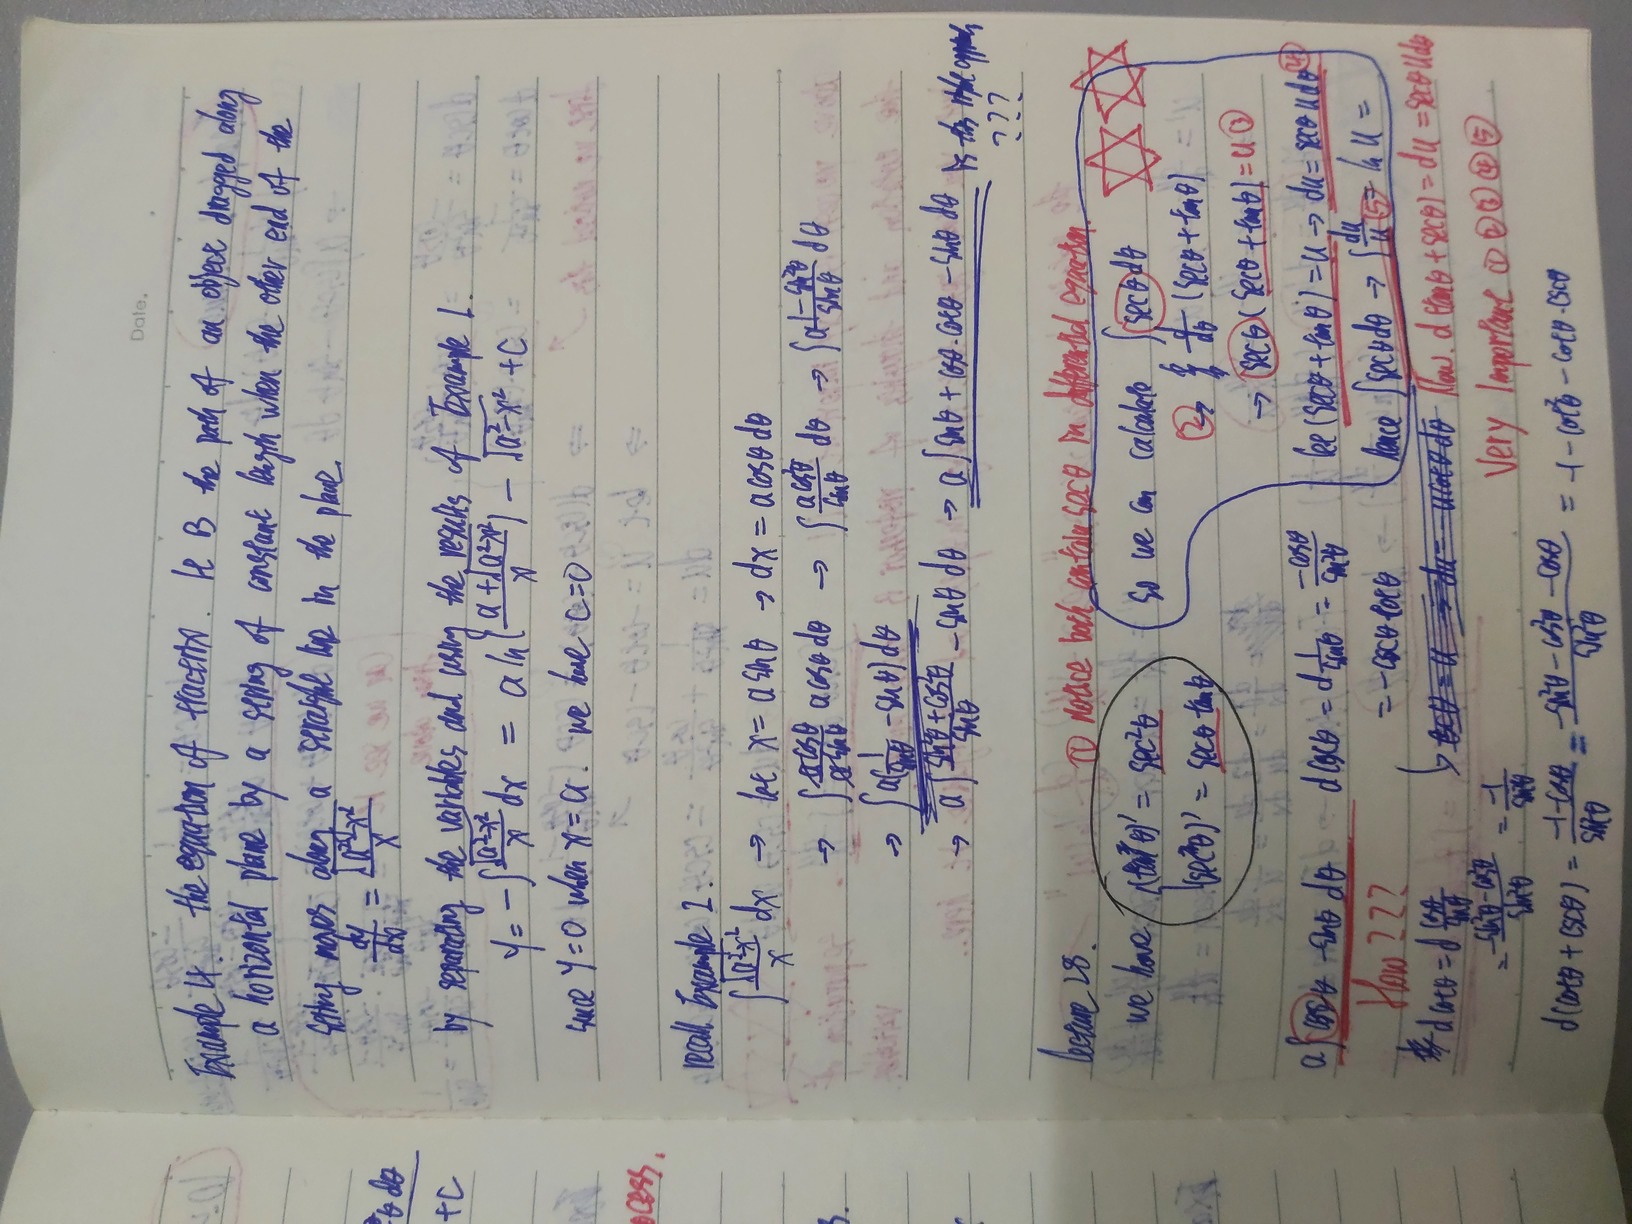 Date.
Example 4. the equation of tractrix. It is the path of an object dragged along
a horizontal plane by a string of constant length when the other end of the
string moves along a straight line in the plane.
dy/dx = √(a²-x²)/x
by separating the variables and using the results of Example 1.
y = -∫ √(a²-x²)/x dx = a ln(a+√(a²-x²)/x) - √(a²-x²) + C
since y=0 when x=a. we have c=0
recall Example 1.
∫ √(a²-x²)/x dx → let x = a sinθ → dx = a cosθ dθ
→ ∫ a cosθ/a sinθ a cosθ dθ → ∫ a cos²θ/sinθ dθ → ∫ a 1-sin²θ/sinθ dθ
→ ∫ a(1/sinθ - sinθ) dθ
→ a∫ sin²θ+cos²θ/sinθ - sinθ dθ → a∫ sinθ + cosθ·cotθ - sinθ dθ is this right approach
???
lecture 28. ① Notice both contain secθ in differential equation.
we have (tanθ)' = sec²θ
(secθ)' = secθ tanθ
So we can calculate ∫ secθ dθ
②→ d/dθ (secθ + tanθ)
→ secθ (secθ + tanθ) = u ③
let (secθ + tanθ) = u → du = secθ u dθ ④
hence ∫ secθ dθ → ∫ du/u ⑤ = ln u =
a∫ cscθ - sinθ dθ
How ???
d cscθ = d 1/sinθ = -cosθ/sin²θ
= -cscθ cotθ
cscθ = u → du = -u cotθ dθ
Now. d(tanθ + secθ) = du = secθ u dθ
d cotθ = d cosθ/sinθ
= -sin²θ-cos²θ/sin²θ = -1/sin²θ
Very Important ① ② ③ ④ ⑤
d(cotθ + cscθ) = -1-cosθ/sin²θ = -sin²θ-cos²θ-cosθ/sin²θ = -1-cot²θ-cotθ·cscθ
θ dθ
+C
ocess.